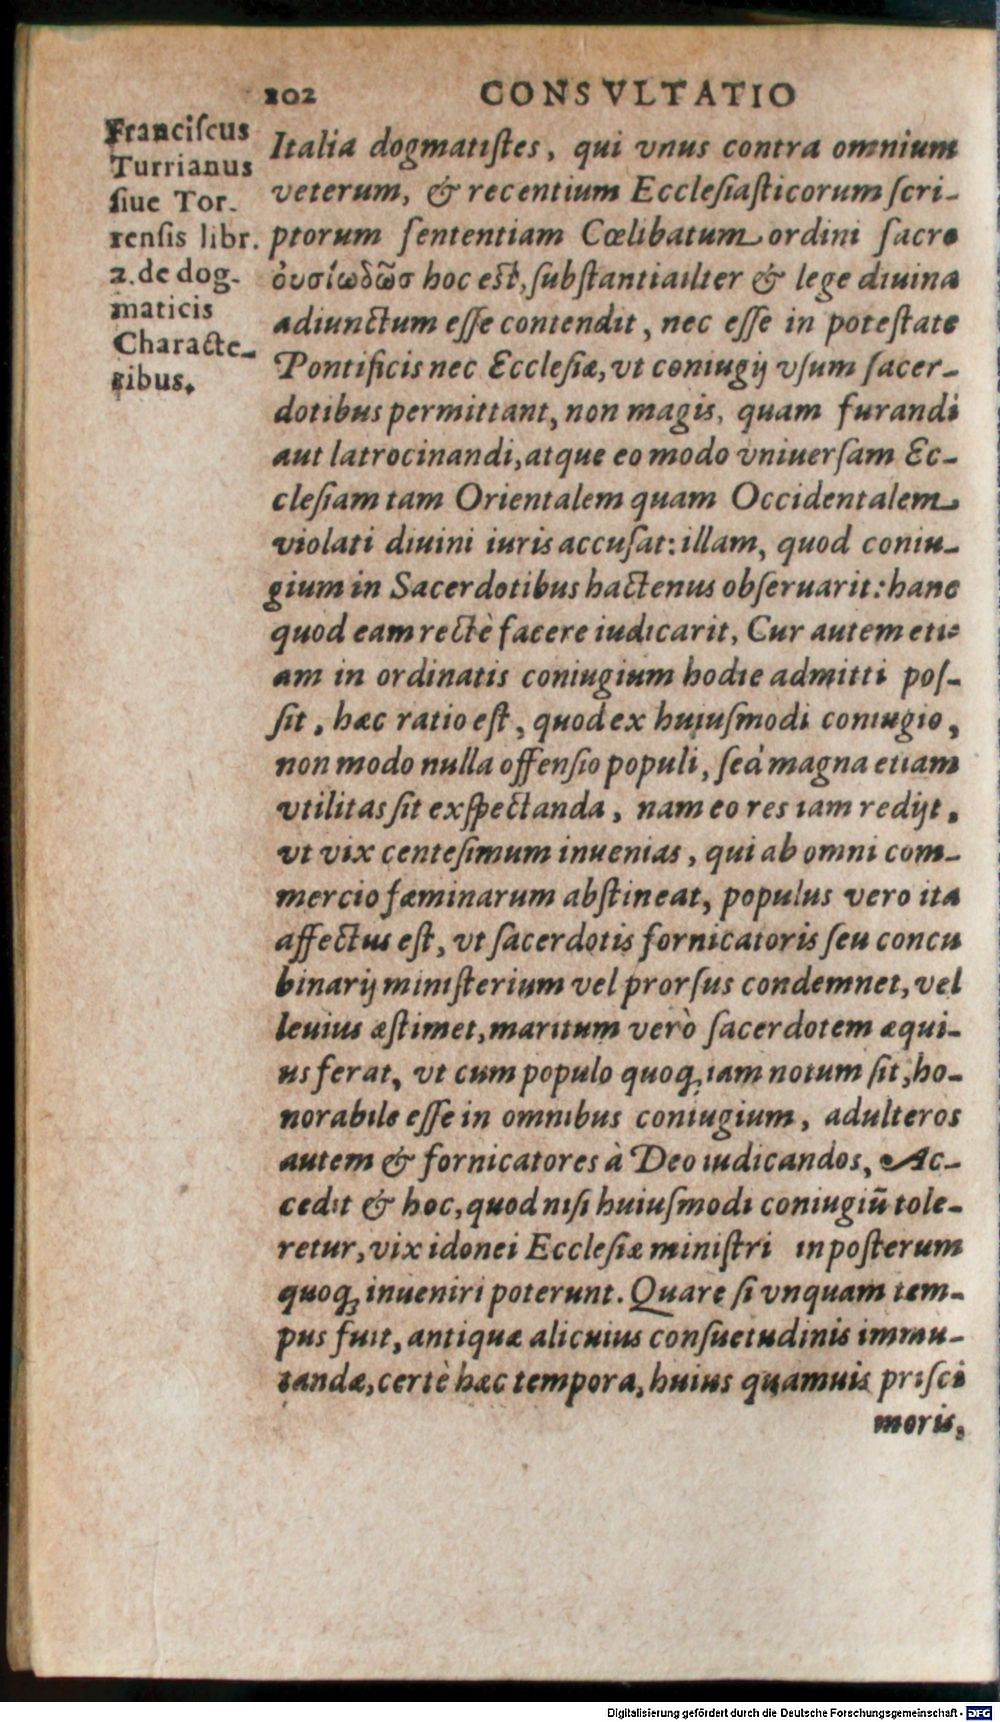 202 CONSVLTATIO
Franciſcus
Turrianus
ſiue Tor-
renſis libr.
2. de dog-
maticis
Characte-
ribus.
Italia dogmatiſtes, qui vnus contra omnium
veterum, & recentium Eccleſiaſticorum ſcri-
ptorum ſententiam Cœlibatum ordini ſacro
ὀυσίωδῶσ hoc est, ſubſtantiailter & lege diuina
adiunctum eſſe contendit, nec eſſe in poteſtate
Pontificis nec Eccleſiæ, vt coniugij vſum ſacer-
dotibus permittant, non magis, quam furandi
aut latrocinandi, atque eo modo vniuerſam Ec-
cleſiam tam Orientalem quam Occidentalem
violati diuini iuris accuſat: illam, quod coniu-
gium in Sacerdotibus hactenus obſeruarit: hanc
quod eam rectè facere iudicarit, Cur autem eti-
am in ordinatis coniugium hodie admitti poſ-
ſit, hæc ratio eſt, quod ex huiuſmodi coniugio,
non modo nulla offenſio populi, ſed magna etiam
vtilitas ſit exſpectanda, nam eo res iam redijt,
vt vix centeſimum inuenias, qui ab omni com-
mercio fæminarum abſtineat, populus vero ita
affectus eſt, vt ſacerdotis fornicatoris ſeu concu
binarij miniſterium vel prorſus condemnet, vel
leuius æſtimet, maritum verò ſacerdotem æqui-
us ferat, vt cum populo quoq; iam notum ſit, ho-
norabile eſſe in omnibus coniugium, adulteros
autem & fornicatores à Deo iudicandos, Ac-
cedit & hoc, quod niſi huiuſmodi coniugiū tole-
retur, vix idonei Eccleſiæ miniſtri in poſterum
quoq; inueniri poterunt. Quare ſi vnquam tem-
pus fuit, antiquæ alicuius conſuetudinis immu-
tandæ, certè hæc tempora, huius quamuis priſci
moris,
Digitalisierung gefördert durch die Deutsche Forschungsgemeinschaft - DFG